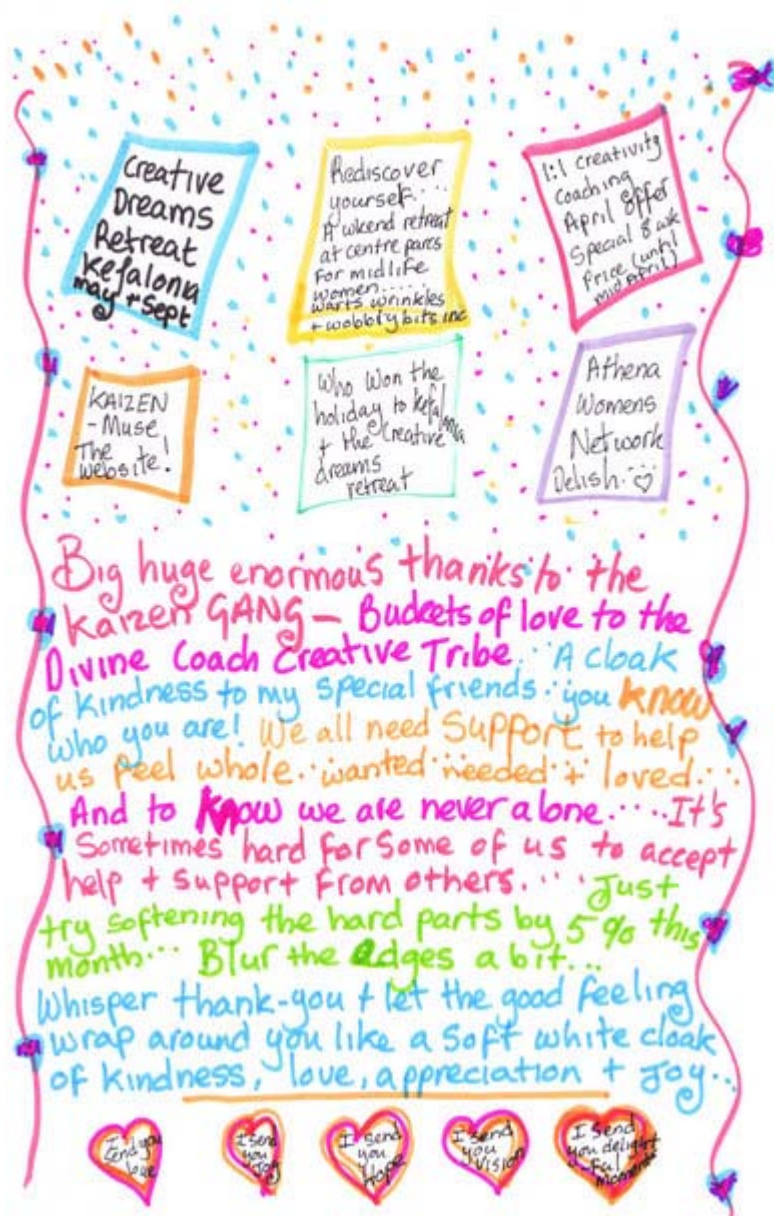 Creative
Dreams
Retreat
Kefalonia
may + Sept
Rediscover
yourself....
A wkend retreat
at centre parcs
For midlife
women.....
warts wrinkles
+ wobbly bits inc
1:1 creativity
Coaching
April Offer
Special 8 wk
Price (until
mid April)
KAIZEN
- Muse
The
Website!
Who Won the
holiday to Kefalonia
+ the Creative
dreams
retreat
Athena
Womens
Network
Delish...
Big huge enormous thanks to the
Kaizen GANG - Buckets of love to the
Divine Coach Creative Tribe... A cloak
of kindness to my special friends.. you know
who you are! We all need Support to help
us feel whole.. wanted needed + loved...
And to know we are never alone..... It's
Sometimes hard for Some of us to accept
help + support From others.... Just
try softening the hard parts by 5% this
month... Blur the edges a bit...
Whisper thank-you + let the good feeling
wrap around you like a soft white cloak
of kindness, love, appreciation + Joy...
I
Send you
love
I send
you
Joy
I send
you
Hope
I send
you
Vision
I send
you delight
-ful
moments